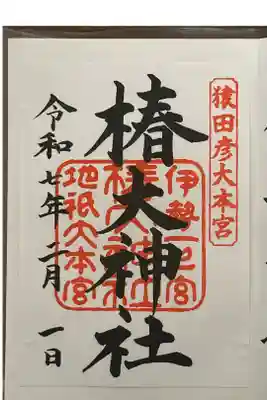 猿田彦大本宮
椿大神社
伊勢一之宮
椿大神社
地祇大本宮
令和七年二月一日